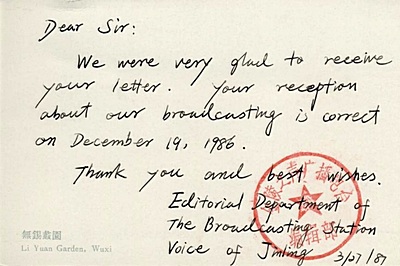 Dear Sir:
We were very glad to receive
your letter. Your reception
about our broadcasting is correct
on December 19, 1986.
Thank you and best wishes.
Editorial Department of
The Broadcasting Station
Voice of Jinling 3/27/87
之声广播电台
编辑部
無錫蠡園
Li Yuan Garden, Wuxi